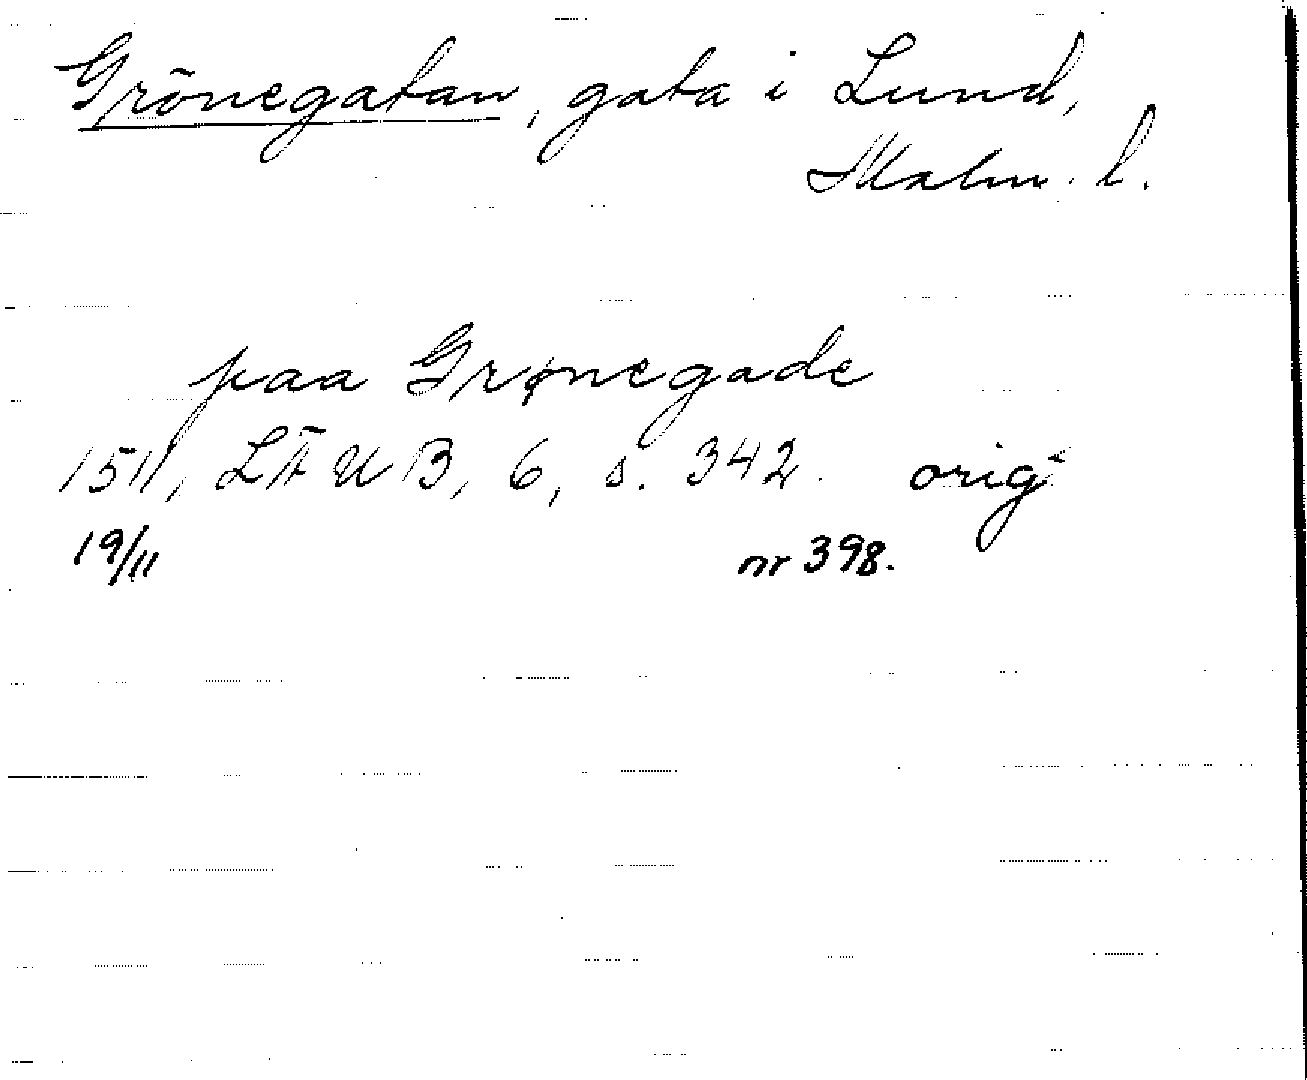 Grönegatan, gata i Lund,
Malm. l.
paa Grønegade
1511, LÄUB, 6, s. 342. orig.
19/11 nr 398.